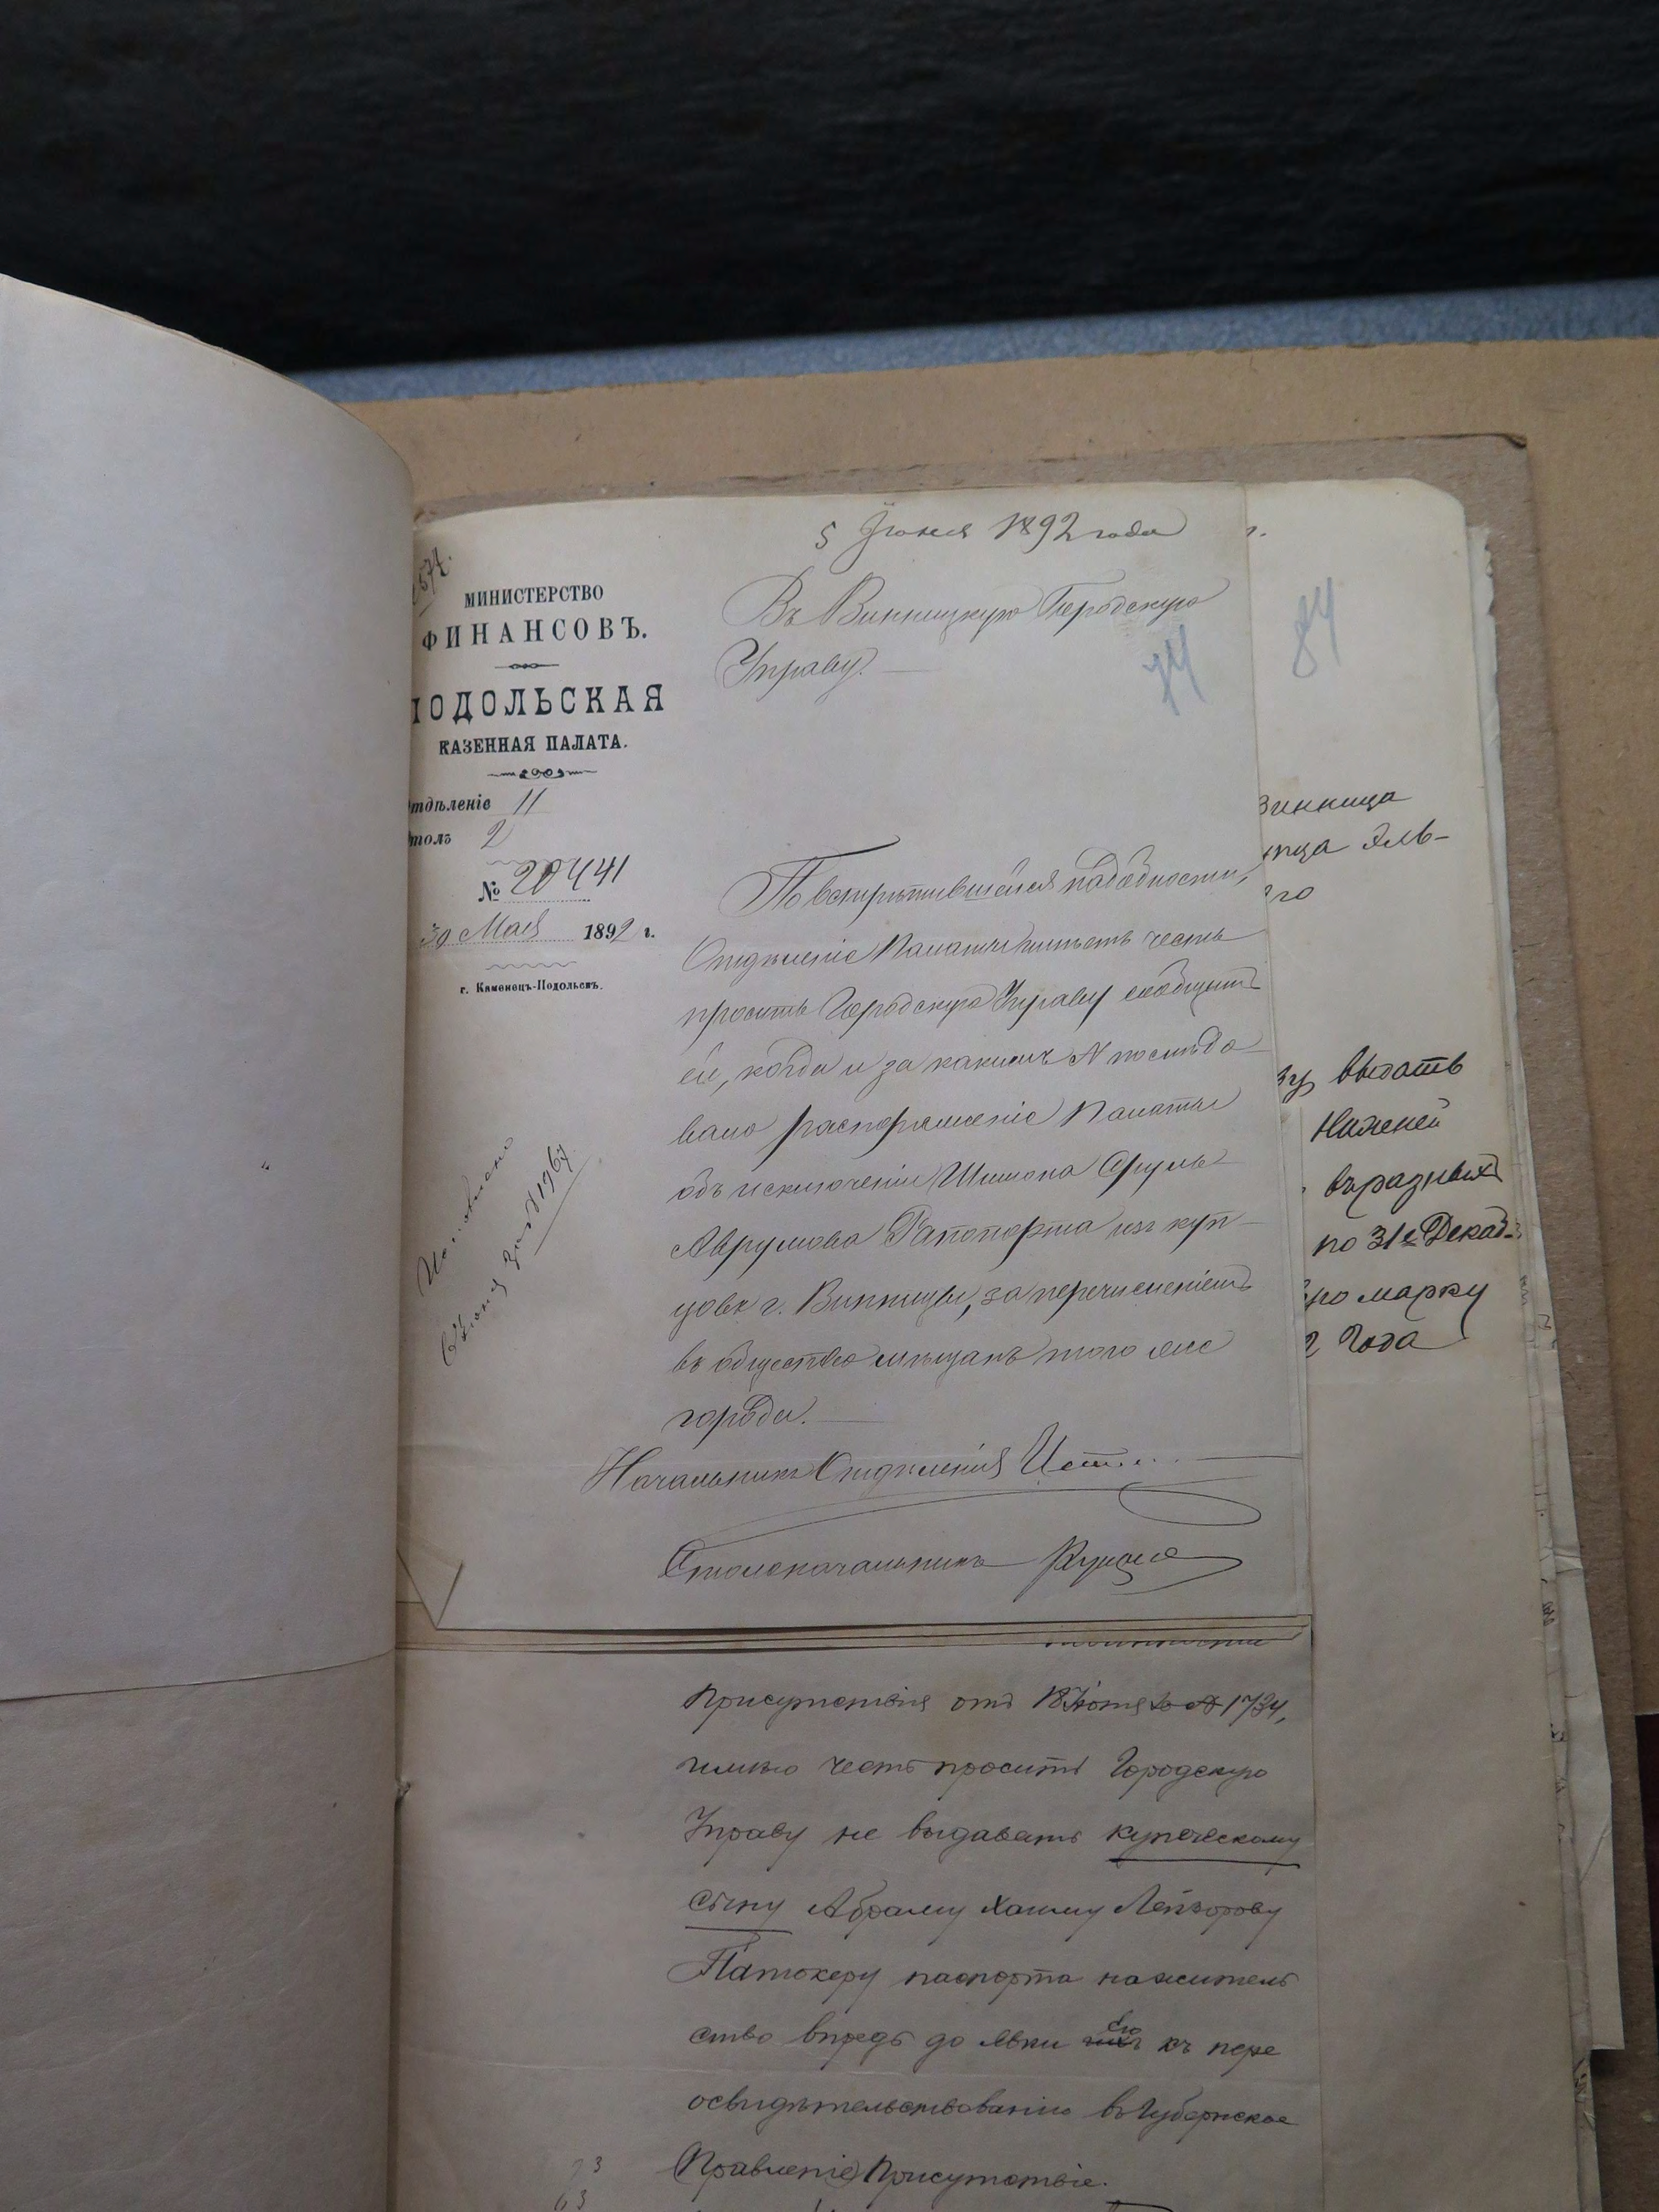 5 Іюня 1892 года
МИНИСТЕРСТВО
ФИНАНСОВЪ.
ПОДОЛЬСКАЯ
КАЗЕННАЯ ПАЛАТА.
тдѣленіе 11
толъ 2
№ 20441
30 Мая 1892 г.
г. Каменецъ-Подольскъ.
Въ Винницкую Городскую
Управу.
74
По встрѣтившейся надобности,
Отдѣленіе Палаты имѣетъ честь
просить Городскую Управу сообщить
ей, когда и за какимъ № послѣдо
вало распоряженіе Палаты
объ исключеніи Шимона Сруля
Аврумова Рапопорта изъ куп
цовъ г. Винницы, за перечисленіемъ
въ общество мѣщанъ того же
города.
Начальникъ Отдѣленія
Столоначальникъ
Исполнено
6 Іюня за № 1967
г.
84
Винница
Эль-
го
выдать
Нижней
въ разныхъ
по 31е Декаб-
марку
2 года
Присутствія отъ 18 Іюня за № 1734,
имѣю честь просить Городскую
Управу не выдавать купеческому
сыну Абраму Хаиму Лейзорову
Патокеру паспорта на житель
ство впредь до явки его къ пере
освидѣтельствованію въ Губернское
Правленіе Присутствіе.
73
63